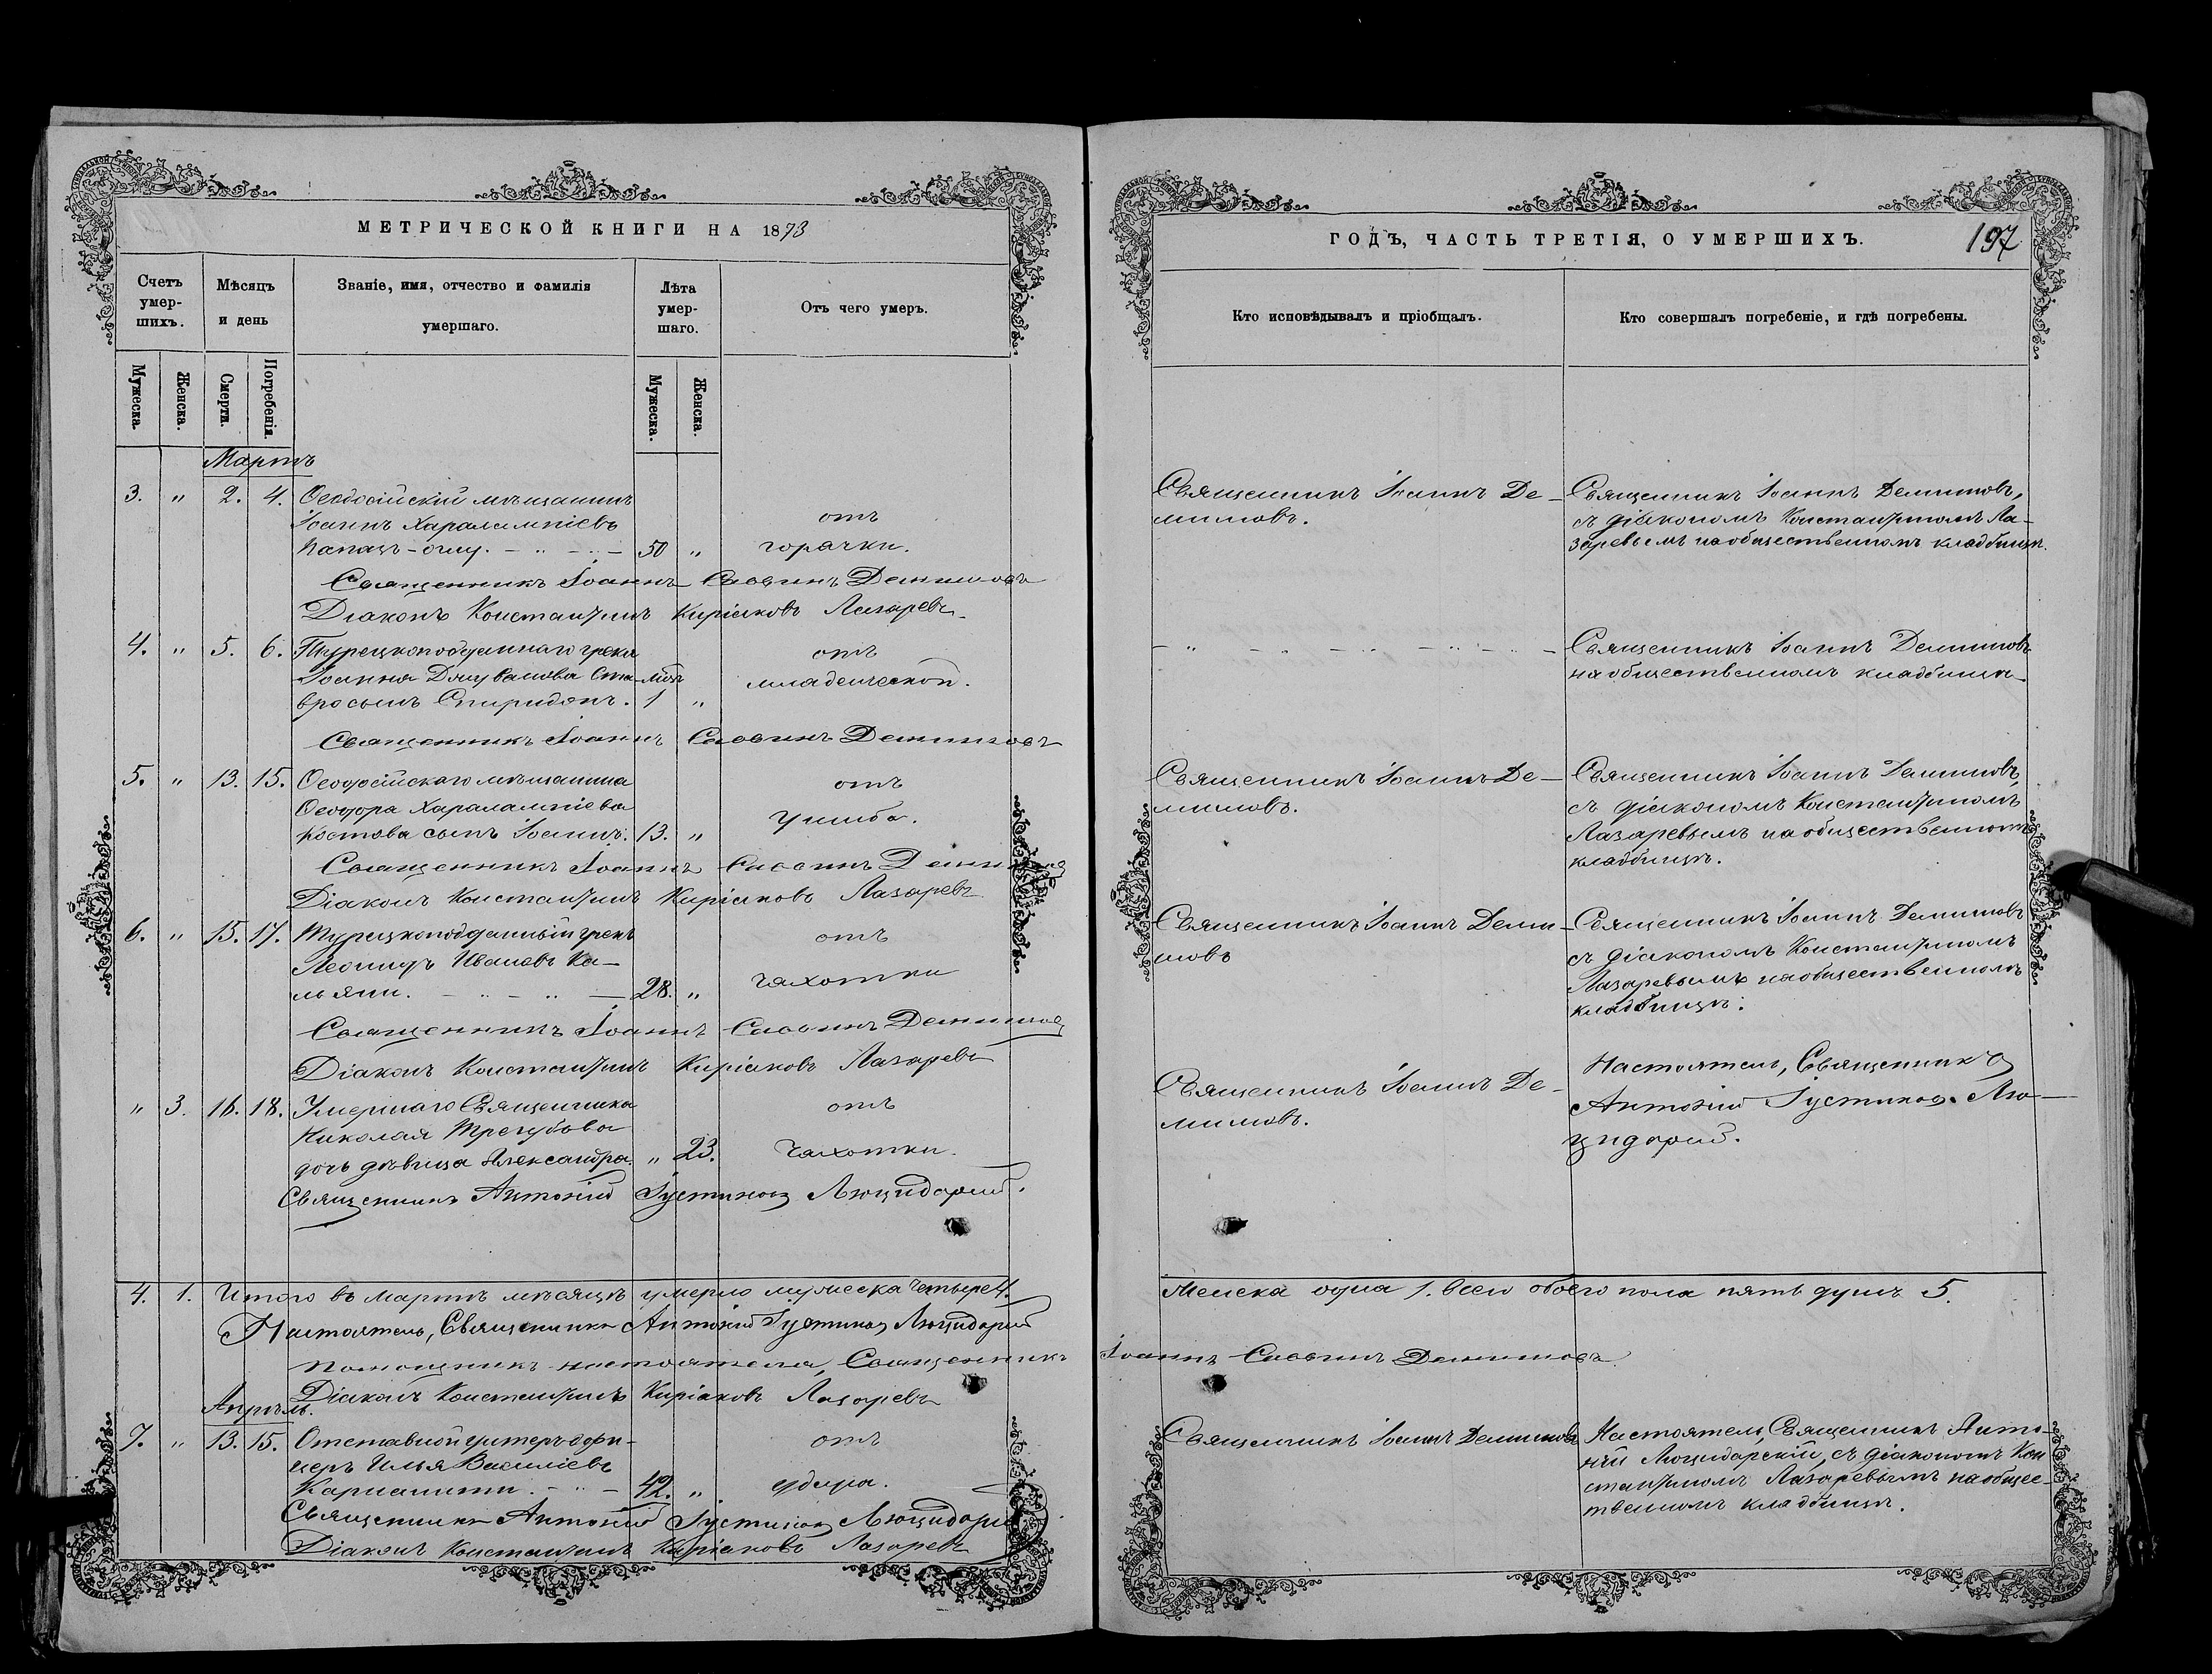 МЕТРИЧЕСКОЙ КНИГИ НА 1873
Счетъ умершихъ.
Мѣсяцъ и день
Званіе, имя, отчество и фамилія умершаго.
Лѣта умершаго.
Отъ чего умеръ.
Мужеска.
Женска.
Смерти.
Погребенія.
Мужеска.
Женска.
Мартъ
3. " 2. 4. Ѳеодосійскій мѣщанинъ
Іоаннъ Харалампіевъ отъ
Папацъ-оглу. 50 " горячки.
Священникъ Іоаннъ Саввинъ Демиповъ
Діаконъ Константинъ Киріаковъ Лазаревъ
4. " 5. 6. Турецкоподданнаго грека отъ
Іоанна Ста- младенческой.
вро сынъ Спиридонъ. 1 "
Священникъ Іоаннъ Саввинъ
5. " 13. 15. Ѳеодосійскаго мѣщанина отъ
Ѳеодора Харалампіева ушиба.
Костова сынъ Іоаннъ. 13. "
Священникъ Іоаннъ Саввинъ
Діаконъ Константинъ Киріаковъ Лазаревъ
6. " 15. 17. Турецкоподданный грекъ отъ
Леонидъ Ивановъ Ка- чахотки
льяни. 28. "
Священникъ Іоаннъ Саввинъ
Діаконъ Константинъ Киріаковъ Лазаревъ
" 3. 16. 18. Умершаго Священника отъ
Николая Трегубова
дочь дѣвица Александра. " 23. Чахотки.
Священникъ Антоній Іустиновъ Люцидарій.
4. 1. Итого въ Мартѣ мѣсяцѣ умерло мужеска четыре 4.
Настоятель, Священникъ Антоній Іустиновъ Люцидарій
Помощникъ настоятеля, Священникъ
Діаконъ Константинъ Киріаковъ Лазаревъ
Апрѣль.
7. " 13. 15. Отставной унтеръ-офи- отъ
церъ Илья Василіевъ
42. " удара.
Священникъ Антоній Іустиновъ Люцидарій
Діаконъ Константинъ Киріаковъ Лазаревъ
ГОДЪ, ЧАСТЬ ТРЕТІЯ, О УМЕРШИХЪ.
197
Кто исповѣдывалъ и пріобщалъ.
Кто совершалъ погребеніе, и гдѣ погребены.
Священникъ Іоаннъ Священникъ Іоаннъ
съ діакономъ Константиномъ Ла-
заревымъ на общественномъ кладбищѣ.
Священникъ Іоаннъ
на общественномъ кладбищѣ
Священникъ Іоаннъ Священникъ Іоаннъ
съ діакономъ Константиномъ
Лазаревымъ на общественномъ
кладбищѣ.
Священникъ Іоаннъ Священникъ Іоаннъ
съ діакономъ Константиномъ
Лазаревымъ на общественномъ
кладбищѣ.
Священникъ Іоаннъ Настоятель, Священникъ
Антоній Іустиновъ Лю-
цидарій.
Женска одна 1. всего обоего пола пять душъ 5.
Іоаннъ Саввинъ
Священникъ Іоаннъ Настоятель, Священникъ Анто-
ній Люцидарскій, съ діакономъ Кон
стантиномъ Лазаревымъ на общес-
твенномъ кладбищѣ.